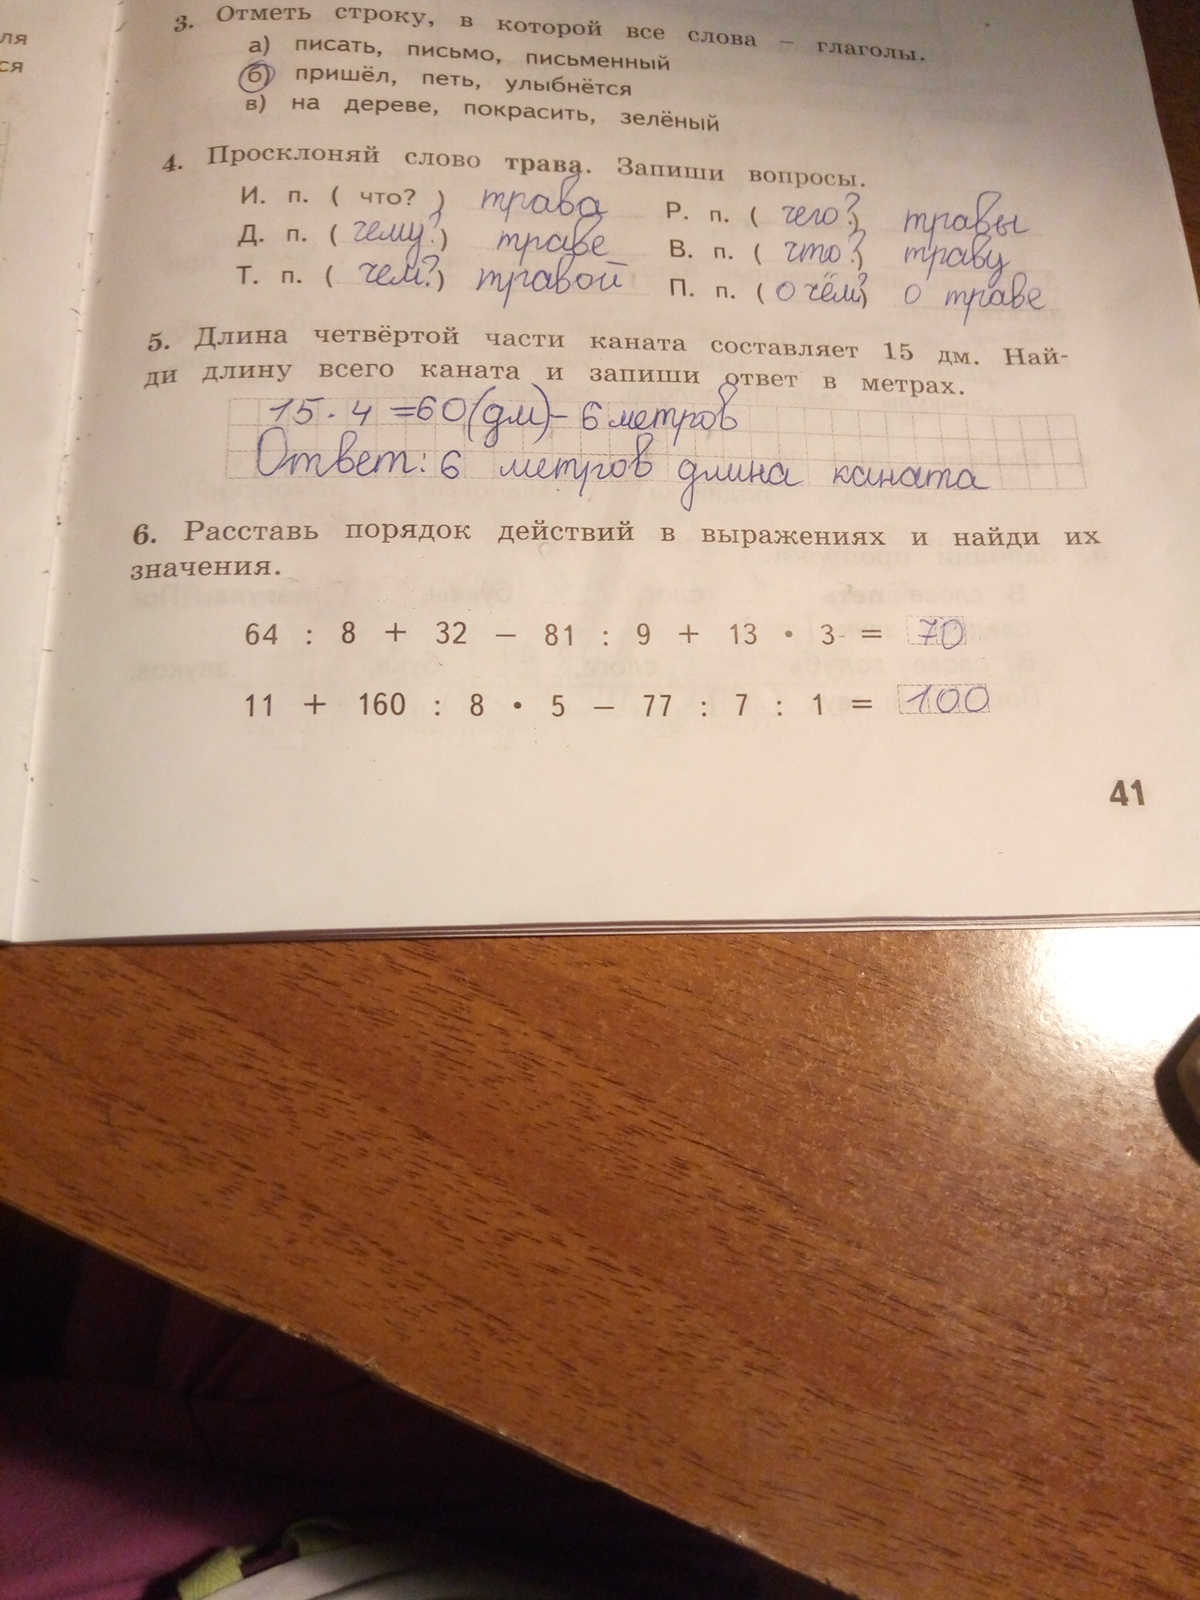 ля
ся
3. Отметь строку, в которой все слова – глаголы.
а) писать, письмо, письменный
б) пришёл, петь, улыбнётся
в) на дереве, покрасить, зелёный
4. Просклоняй слово трава. Запиши вопросы.
И. п. ( что? ) трава Р. п. ( чего? ) травы
Д. п. ( чему? ) траве В. п. ( что? ) траву
Т. п. ( чем? ) травой П. п. ( о чём? ) о траве
5. Длина четвёртой части каната составляет 15 дм. Най-
ди длину всего каната и запиши ответ в метрах.
15 · 4 = 60 (дм) – 6 метров
Ответ: 6 метров длина каната
6. Расставь порядок действий в выражениях и найди их
значения.
64 : 8 + 32 – 81 : 9 + 13 · 3 = 70
11 + 160 : 8 · 5 – 77 : 7 : 1 = 100
41